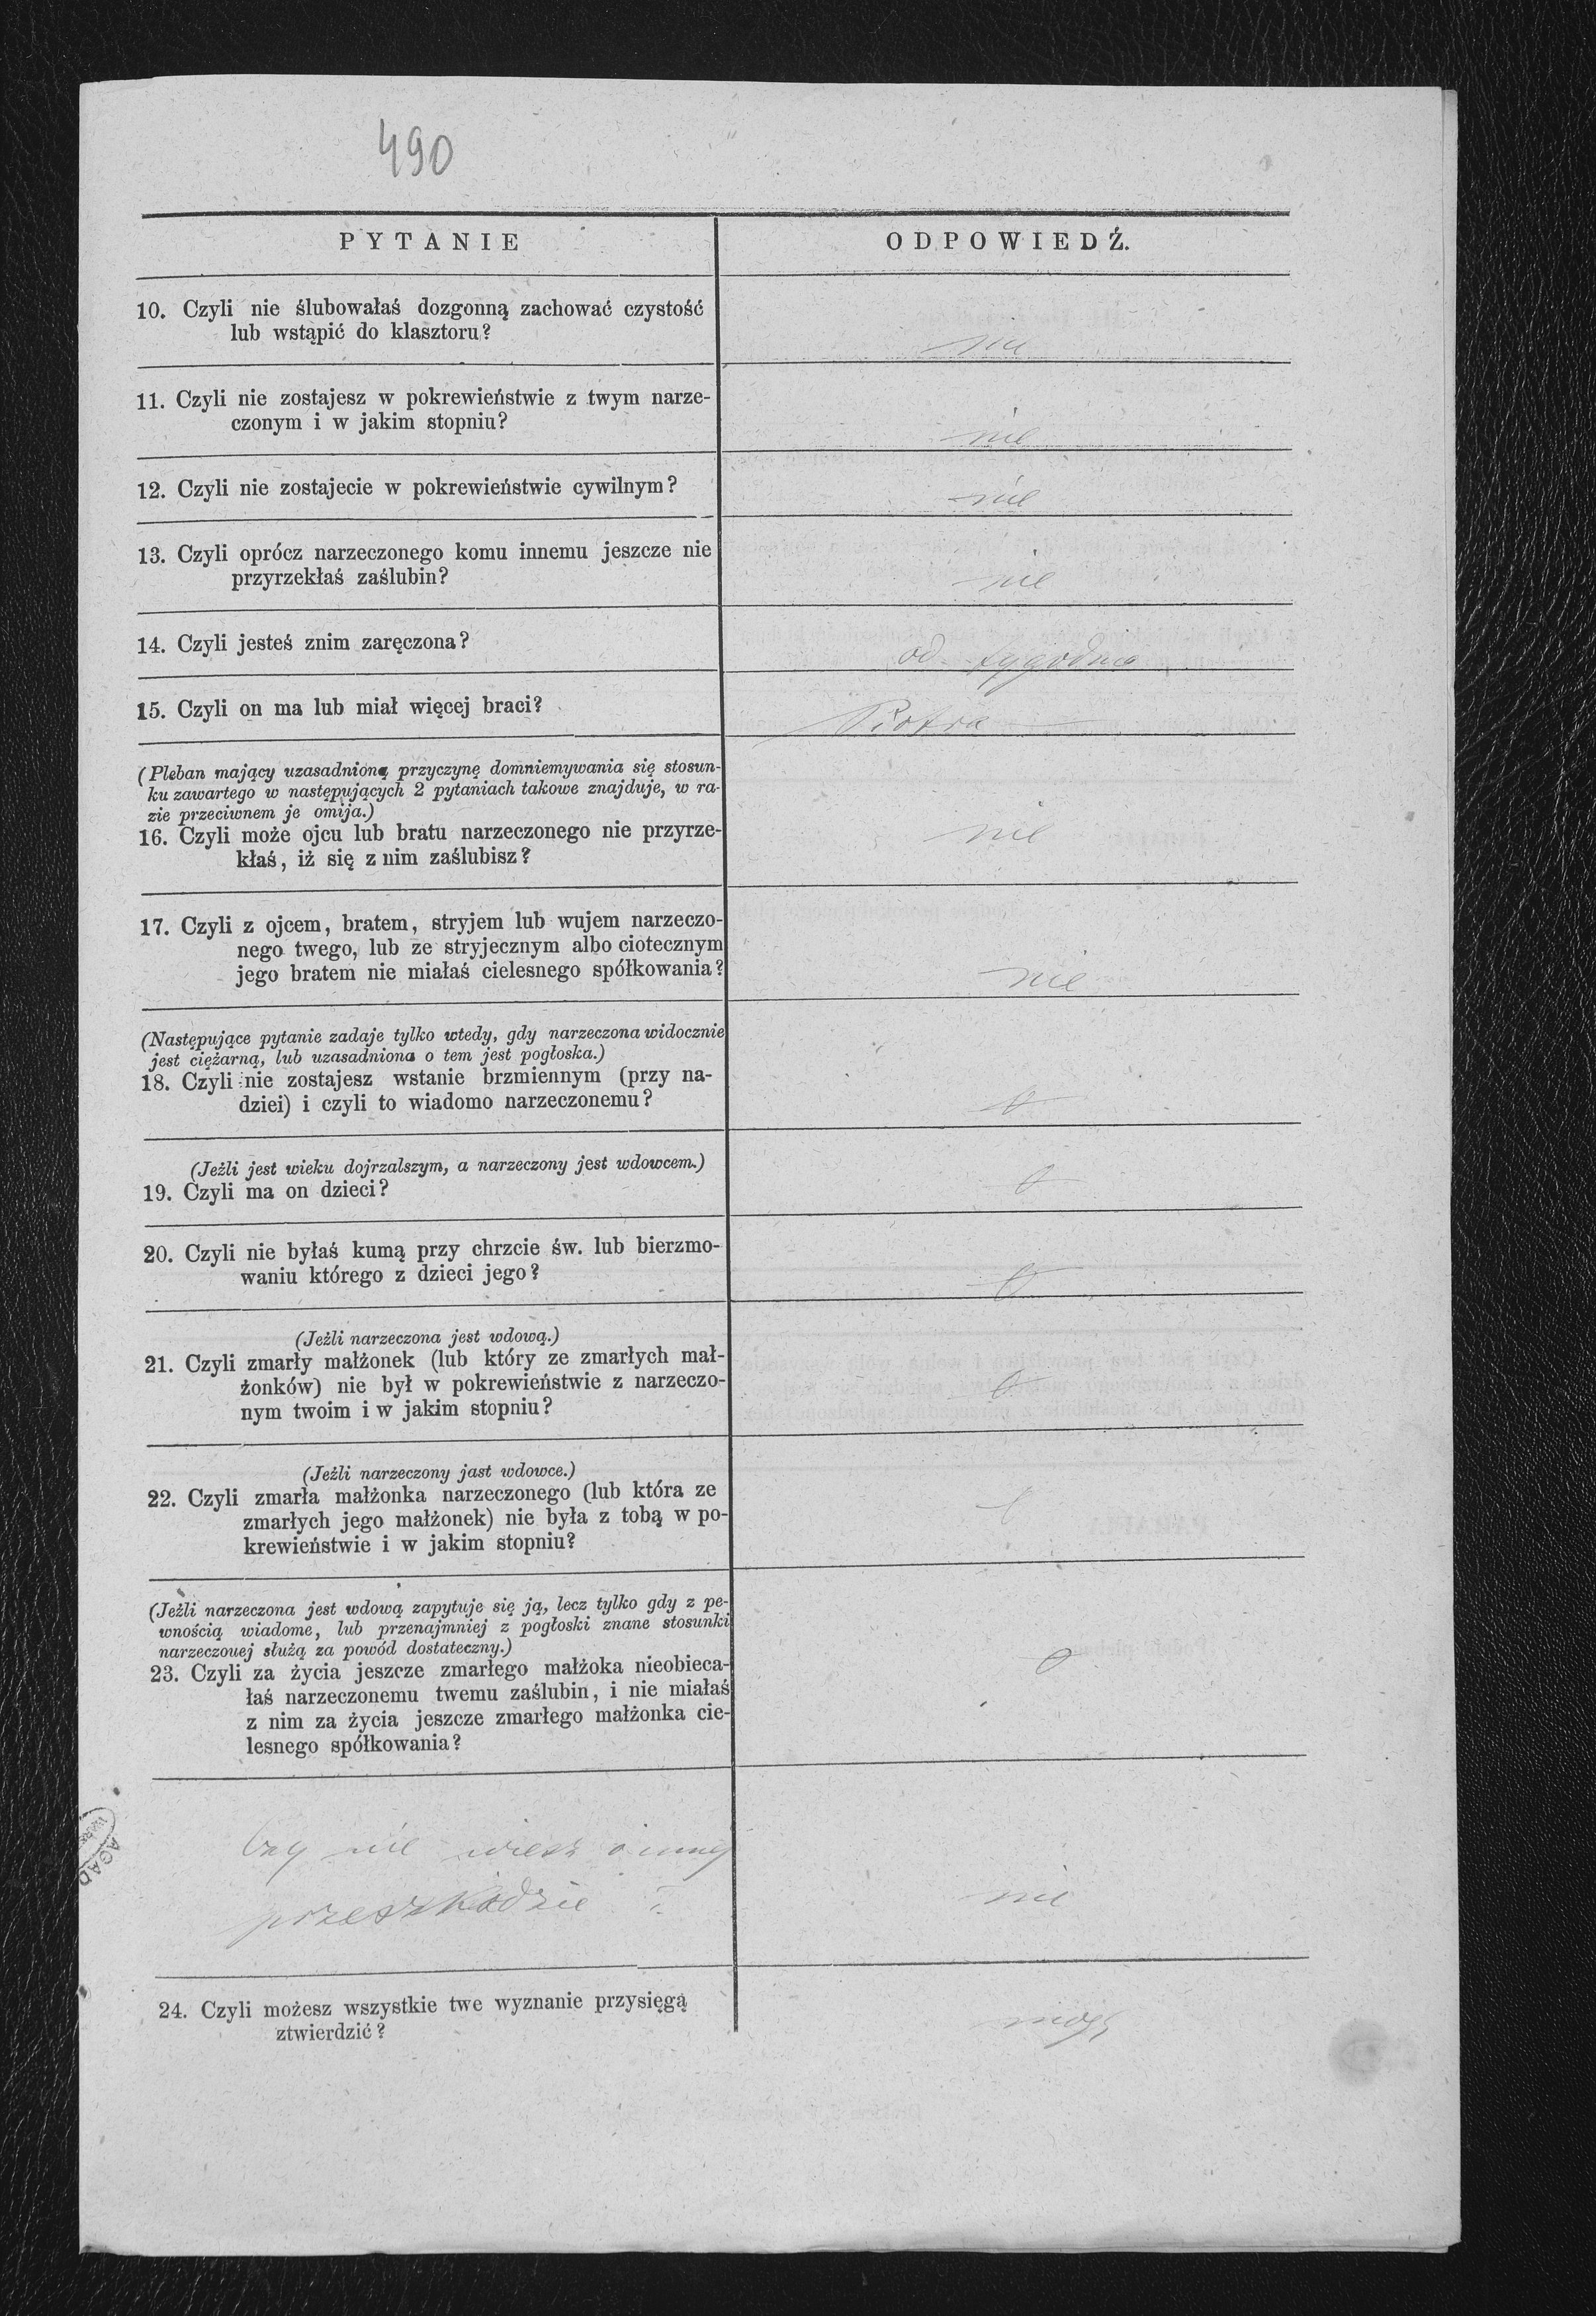 490
PYTANIE
ODPOWIEDŹ.
10. Czyli nie ślubowałaś dozgonną zachować czystość
lub wstąpić do klasztoru?
nie
11. Czyli nie zostajesz w pokrewieństwie z twym narze-
czonym i w jakim stopniu?
nie
12. Czyli nie zostajecie w pokrewieństwie cywilnym?
nie
13. Czyli oprócz narzeczonego komu innemu jeszcze nie
przyrzekłaś zaślubin?
nie
14. Czyli jesteś znim zaręczona?
od tygodnia
15. Czyli on ma lub miał więcej braci?
Piotra
(Pleban mający uzasadnioną przyczynę domniemywania się stosun-
ku zawartego w następujących 2 pytaniach takowe znajduje, w ra-
zie przeciwnem je omija.)
16. Czyli może ojcu lub bratu narzeczonego nie przyrze-
kłaś, iż się z nim zaślubisz?
nie
17. Czyli z ojcem, bratem, stryjem lub wujem narzeczo-
nego twego, lub ze stryjecznym albo ciotecznym
jego bratem nie miałaś cielesnego spółkowania?
nie
(Następujące pytanie zadaje tylko wtedy, gdy narzeczona widocznie
jest ciężarną, lub uzasadniona o tem jest pogłoska.)
18. Czyli nie zostajesz wstanie brzmiennym (przy na-
dziei) i czyli to wiadomo narzeczonemu?
o
(Jeżli jest wieku dojrzalszym, a narzeczony jest wdowcem.)
19. Czyli ma on dzieci?
o
20. Czyli nie byłaś kumą przy chrzcie św. lub bierzmo-
waniu którego z dzieci jego?
o
(Jeżli narzeczona jest wdową.)
21. Czyli zmarły małżonek (lub który ze zmarłych mał-
żonków) nie był w pokrewieństwie z narzeczo-
nym twoim i w jakim stopniu?
o
(Jeżli narzeczony jast wdowce.)
22. Czyli zmarła małżonka narzeczonego (lub która ze
zmarłych jego małżonek) nie była z tobą w po-
krewieństwie i w jakim stopniu?
o
(Jeżli narzeczona jest wdową zapytuje się ją, lecz tylko gdy z pe-
wnością wiadome, lub przenajmniej z pogłoski znane stosunki
narzeczouej służą za powód dostateczny.)
23. Czyli za życia jeszcze zmarłego małżoka nieobieca-
łaś narzeczonemu twemu zaślubin, i nie miałaś
z nim za życia jeszcze zmarłego małżonka cie-
lesnego spółkowania?
o
Czy nie wiesz o innej
przeszkodzie?
nie
24. Czyli możesz wszystkie twe wyznanie przysięgą
ztwierdzić?
mogę
AGAD